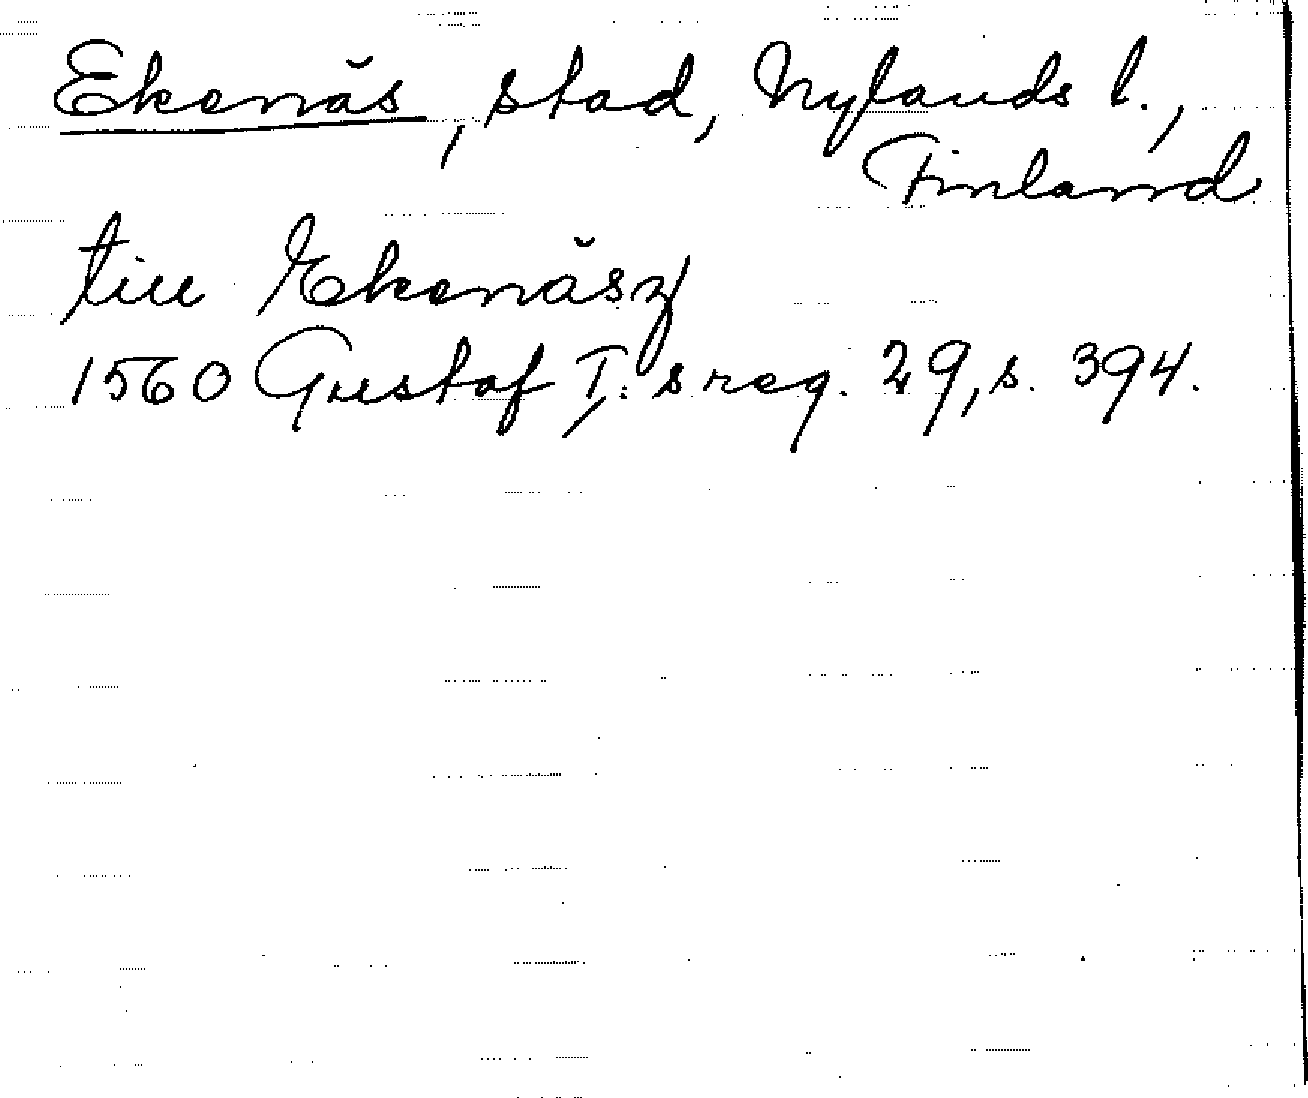 Ekenäs, stad, Nylands l.,
Finland
till Ekenäsz
1560 Gustaf I:s reg. 29, s. 394.